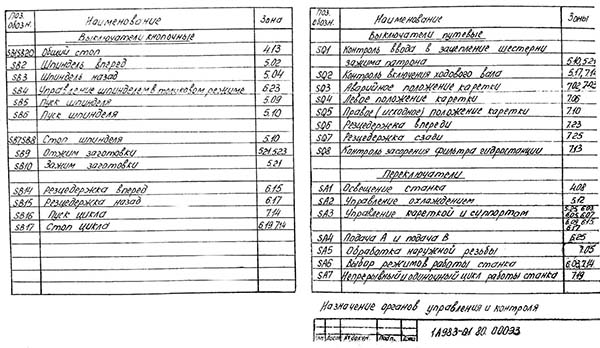 Поз. обозн. Наименование Зона
Выключатели кнопочные
Общий стоп 4.13
SB2 Шпиндель вперед 5.02
SB3 Шпиндель назад 5.04
SB4 Управление шпинделем в толчковом режиме 6.23
SB5 Пуск шпинделя 5.09
SB6 Пуск шпинделя 5.10
SB7SB8 Стоп шпинделя 5.10
SB9 Отжим заготовки 5.21 5.23
SB10 Зажим заготовки 5.21
SB14 Резцедержка вперед 6.15
SB15 Резцедержка назад 6.17
SB16 Пуск цикла 7.14
SB17 Стоп цикла 6.19 7.14
Поз. обозн. Наименование Зоны
Выключатели путевые
SQ1 Контроль ввода в зацепление шестерни
зажима патрона 5.10,
SQ2 Контроль включения ходового вала 5.17,
SQ3 Аварийное положение каретки 7.02,
SQ4 Левое положение каретки 7.06
SQ5 Правое (исходное) положение каретки 7.10
SQ6 Резцедержка впереди 7.23
SQ7 Резцедержка сзади 7.25
SQ8 Контроль засорения фильтра гидростанции 7.13
Переключатели
SA1 Освещение станка 4.08
SA2 Управление охлаждением 5.12
SA3 Управление кареткой и суппортом 5.25 6.03
6.05 6.07
6.09 6.15
6.17
SA4 Подача А и подача В 6.25
SA5 Обработка наружной резьбы 7.05
SA6 Выбор режимов работы станка 6.08, 7.14
SA7 Непрерывный и одиночный цикл работы станка 7.19
Назначение органов управления и контроля
1А983-01 80. 000Э3